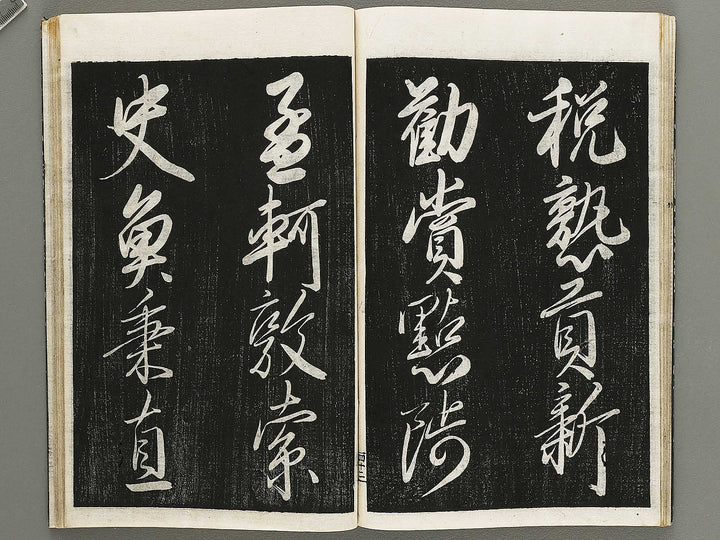 税熟貢新
勸賞黜陟
孟軻敦素
史魚秉直